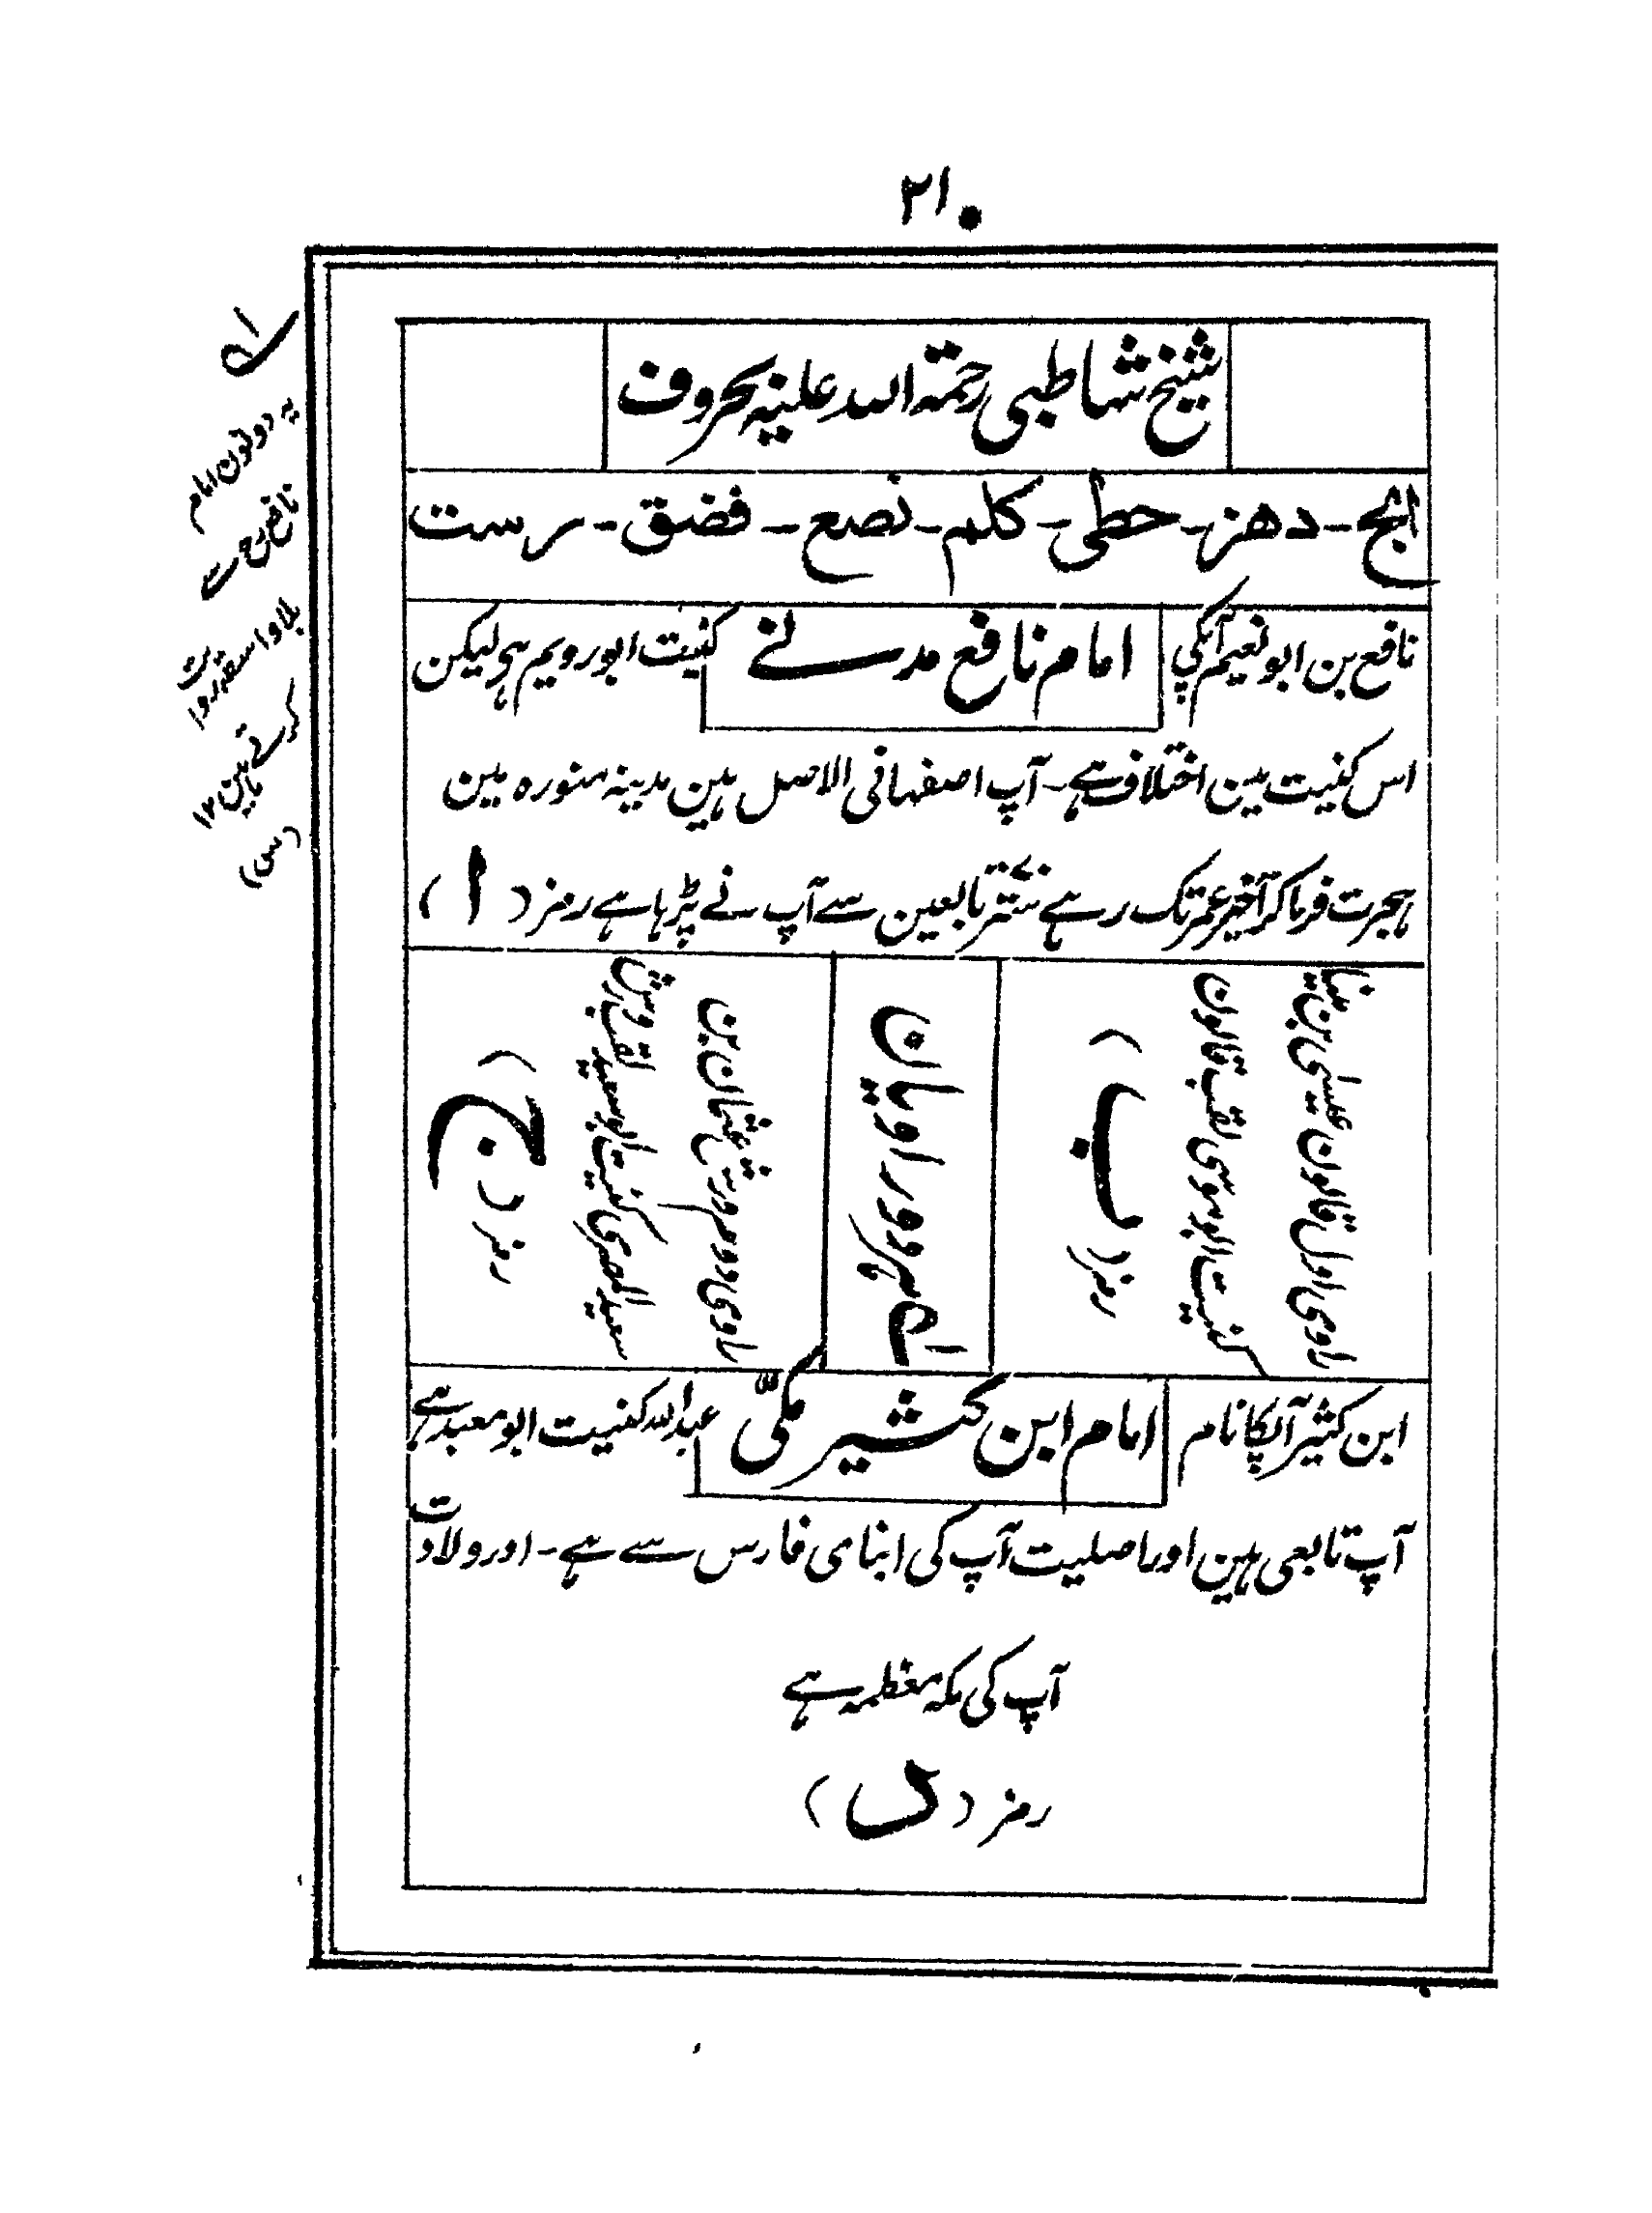 ۲۱
شیخ شاطبی رحمۃ اللہ علیہ بحروف
ابج - دهز - حطی - کلم - نصع - فضق - رست
نافع بن ابو نعیم آپکی
امام نافع مدنے
کنیت ابو رویم ہی لیکن
اس کنیت مین اختلاف ہے - آپ اصفہانی الاصل ہین مدینہ منورہ مین
ہجرت فرما کر آخیر عمر تک رہے ستر تابعین سے آپ نے پڑہا ہے رمز ( ا )
راوی اول قالون عیسی بن مینا
کنیت ابو موسی لقب قالون
رمز ( ب )
ہر دو راویان
راوی دوم ورش عثمان بن
سعید المصری کنیت ابو سعید لقب ورش
رمز ( ج )
ابن کثیر آپکا نام
امام ابن کثیر مکّی
عبد اللہ کنیت ابو معبد ہے
آپ تابعی ہین اور اصلیت آپ کی ابنای فارس سے ہے - اور ولادت
آپ کی مکہ معظمہ ہے
رمز ( د )
یہ دونون امام
نافع رح سے
بلا واسطہ روایت
کرتے ہین ۱۲